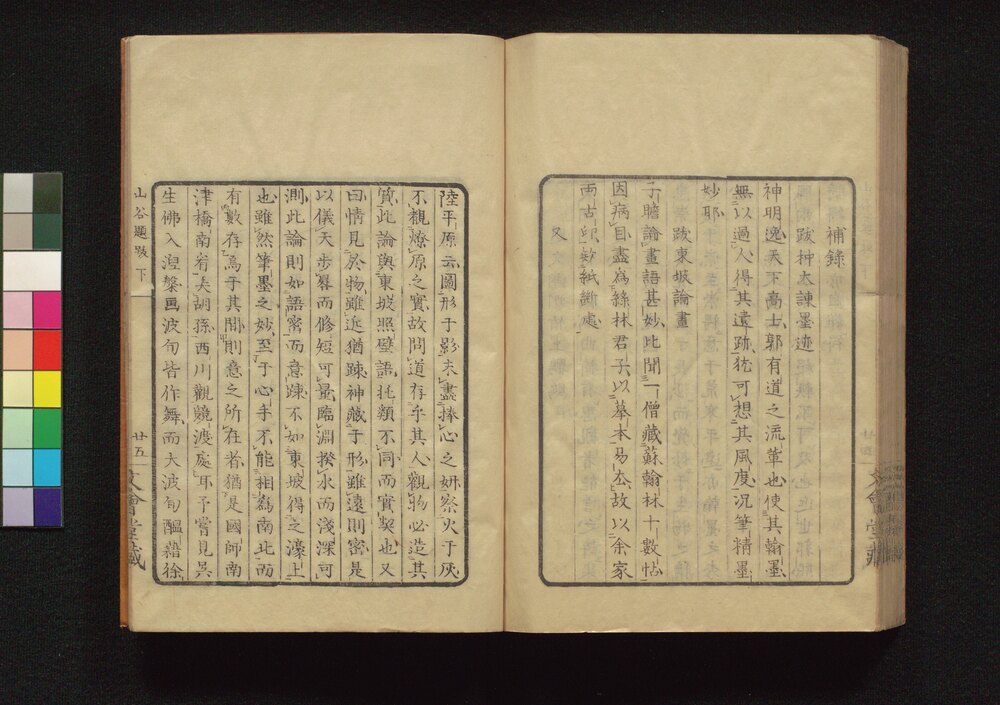 補錄
跋种太諫墨迹
神明逸天下高士郭有道之流輩也使其翰墨
無以過人得其遺跡犹可想其風度況筆精墨
妙耶
跋東坡論畫
子瞻論畫語甚妙比聞一僧藏蘇翰林十數帖
因病目盡為絲林君子以摹本易去故以余家
両古印妙紙縫處
又
陸平原云圖形于影未盡捧心之妍察火于灰
不觀燎原之實故問道存乎其人觀物必造其
質此論與東坡照壁語托類不同而實契也又
曰情見於物雖近猶疎神藏于形雖遠則密是
以儀天步晷而修短可量臨淵揆水而淺深可
測此論則如語密而意疎不如東坡得之濠上
也雖然筆墨之妙至于心手不能相為南北而
有數存焉于其間則意之所在者猶是國師南
津橋南看弄胡孫西川觀競渡處耳予嘗見吳
生佛入涅槃畫波旬皆作舞而大波旬醞藉徐
山谷題跋 下
廿五
文會堂藏
文會堂藏